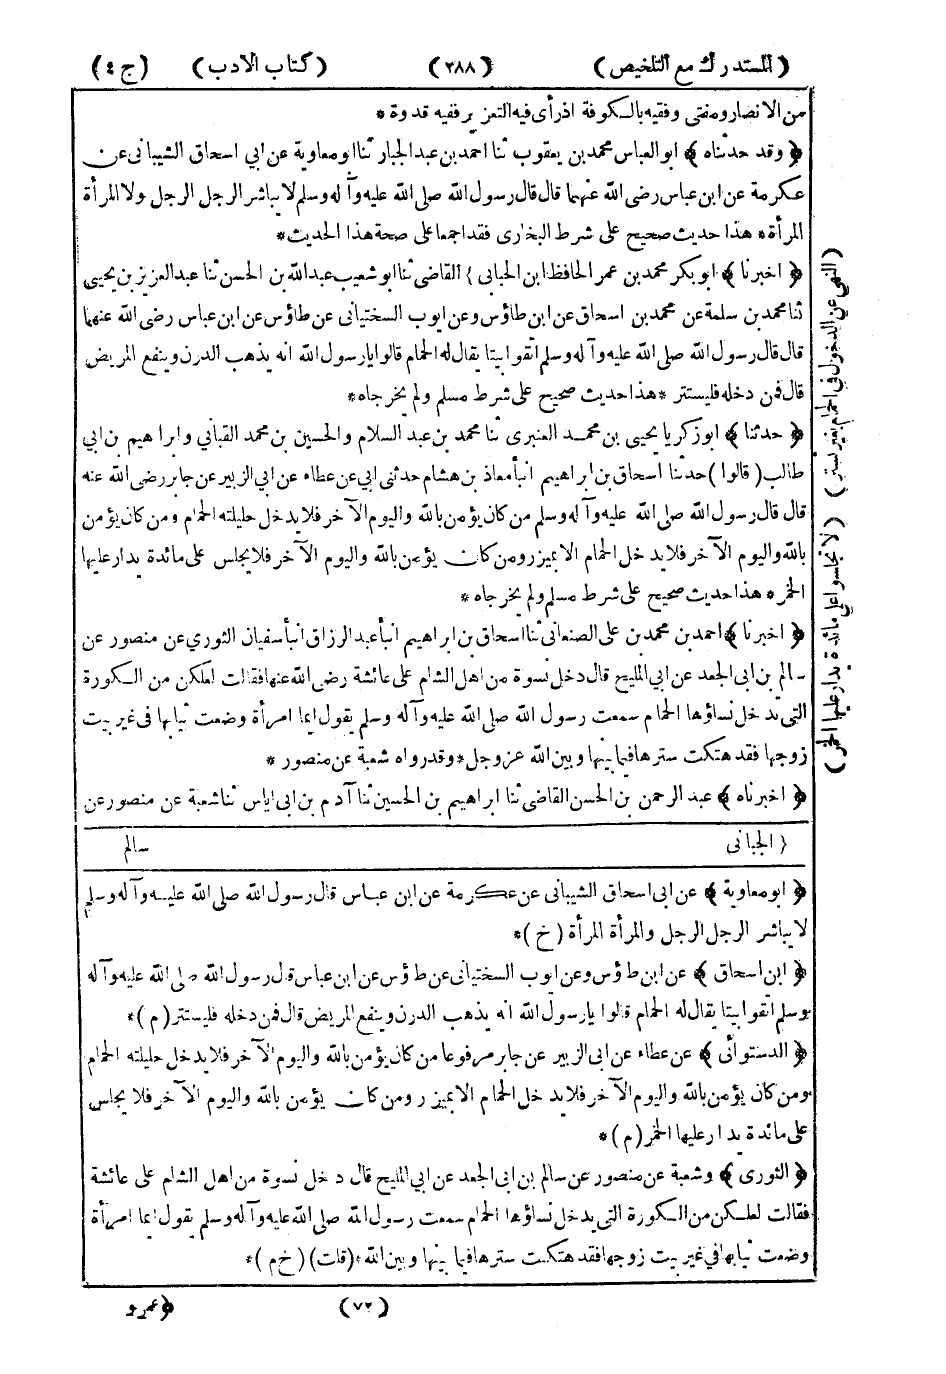 (المستدرك مع التلخيص) (٢٨٨) (كتاب الادب) (ج ٤)
من الانصار ومفتى وفقيه بالكوفة اذ رأى فيه التعزير ففيه قدوة *
﴿ وقد حدثناه ﴾ ابو العباس محمد بن يعقوب ثنا احمد بن عبد الجبار ثنا ابو معاوية عن ابي اسحاق الشيبانى عن
عكرمة عن ابن عباس رضى الله عنهما قال قال رسول الله صلى الله عليه وآله وسلم لا يباشر الرجل الرجل ولا المرأة
المرأة * هذا حديث صحيح على شرط البخارى فقد اجمعا على صحة هذا الحديث *
﴿ اخبرنا ﴾ ابو بكر محمد بن عمر الحافظ ابن الجبابى } القاضى ثنا ابو شعيب عبد الله بن الحسن ثنا عبد العزيز بن يحيى
ثنا محمد بن سلمة عن محمد بن اسحاق عن ابن طاؤس وعن ايوب السختيانى عن طاؤس عن ابن عباس رضى الله عنهما
قال قال رسول الله صلى الله عليه وآله وسلم اتقوا بيتا يقال له الحمام قالوا يا رسول الله انه يذهب الدرن وينفع المريض
قال فمن دخله فليستتر * هذا حديث صحيح على شرط مسلم ولم يخرجاه *
﴿ حدثنا ﴾ ابو زكريا يحيى بن محمد العنبرى ثنا محمد بن عبد السلام والحسين بن محمد القبانى وابراهيم بن ابي
طالب (قالوا) حدثنا اسحاق بن ابراهيم انبأ معاذ بن هشام حدثنى ابي عن عطاء عن ابي الزبير عن جابر رضى الله عنه
قال قال رسول الله صلى الله عليه وآله وسلم من كان يؤمن بالله واليوم الآخر فلا يدخل حليلته الحمام ومن كان يؤمن
بالله واليوم الآخر فلا يدخل الحمام الا بميزر ومن كان يؤمن بالله واليوم الآخر فلا يجلس على مائدة يدار عليها
الخمر * هذا حديث صحيح على شرط مسلم ولم يخرجاه *
﴿ اخبرنا ﴾ احمد بن محمد بن على الصنعانى ثنا اسحاق بن ابراهيم انبأ عبد الرزاق انبأ سفيان الثوري عن منصور عن
سالم بن ابى الجعد عن ابي المليح قال دخل نسوة من اهل الشام على عائشة رضى الله عنها فقالت لعلكن من الكورة
التى يدخل نساؤها الحمام سمعت رسول الله صلى الله عليه وآله وسلم يقول ايما امرأة وضعت ثيابها فى غير بيت
زوجها فقد هتكت سترها فيما بينها وبين الله عز وجل * وقد رواه شعبة عن منصور *
﴿ اخبرناه ﴾ عبد الرحمن بن الحسن القاضى ثنا ابراهيم بن الحسين ثنا آدم بن ابى اياس ثنا شعبة عن منصور عن
} الجبانى سالم
﴿ ابو معاوية ﴾ عن ابى اسحاق الشيبانى عن عكرمة عن ابن عباس قال رسول الله صلى الله عليه وآله وسلم
لا يباشر الرجل الرجل والمرأة المرأة (خ) *
﴿ ابن اسحاق ﴾ عن ابن طؤس وعن ايوب السختيانى عن طؤس عن ابن عباس قل رسول الله صلى الله عليه وآله
وسلم اتقوا بيتا يقال له الحمام قالوا يا رسول الله انه يذهب الدرن وينفع المريض قال فمن دخله فليستتر (م) *
﴿ الدستوائى ﴾ عن عطاء عن ابى الزبير عن جابر مرفوعا من كان يؤمن بالله واليوم الآخر فلا يدخل حليلته الحمام
ومن كان يؤمن بالله واليوم الآخر فلا يدخل الحمام الا بميزر ومن كان يؤمن بالله واليوم الآخر فلا يجلس
على مائدة يدار عليها الخمر (م) *
﴿ الثورى ﴾ وشعبة عن منصور عن سالم بن ابى الجعد عن ابي المليح قال دخل نسوة من اهل الشام على عائشة
فقالت لعلكن من الكورة التى يدخل نساؤها الحمام سمعت رسول الله صلى الله عليه وآله وسلم يقول ايما امرأة
وضعت ثيابها في غير بيت زوجها فقد هتكت سترها فيما بينها وبين الله * (قلت) (خ م) *
(٧٢) ﴿ عمرو
(النهى عن الدخول فى الحمام بغير تستر) (لا تجلسوا على مائدة يدار عليها الخمر)